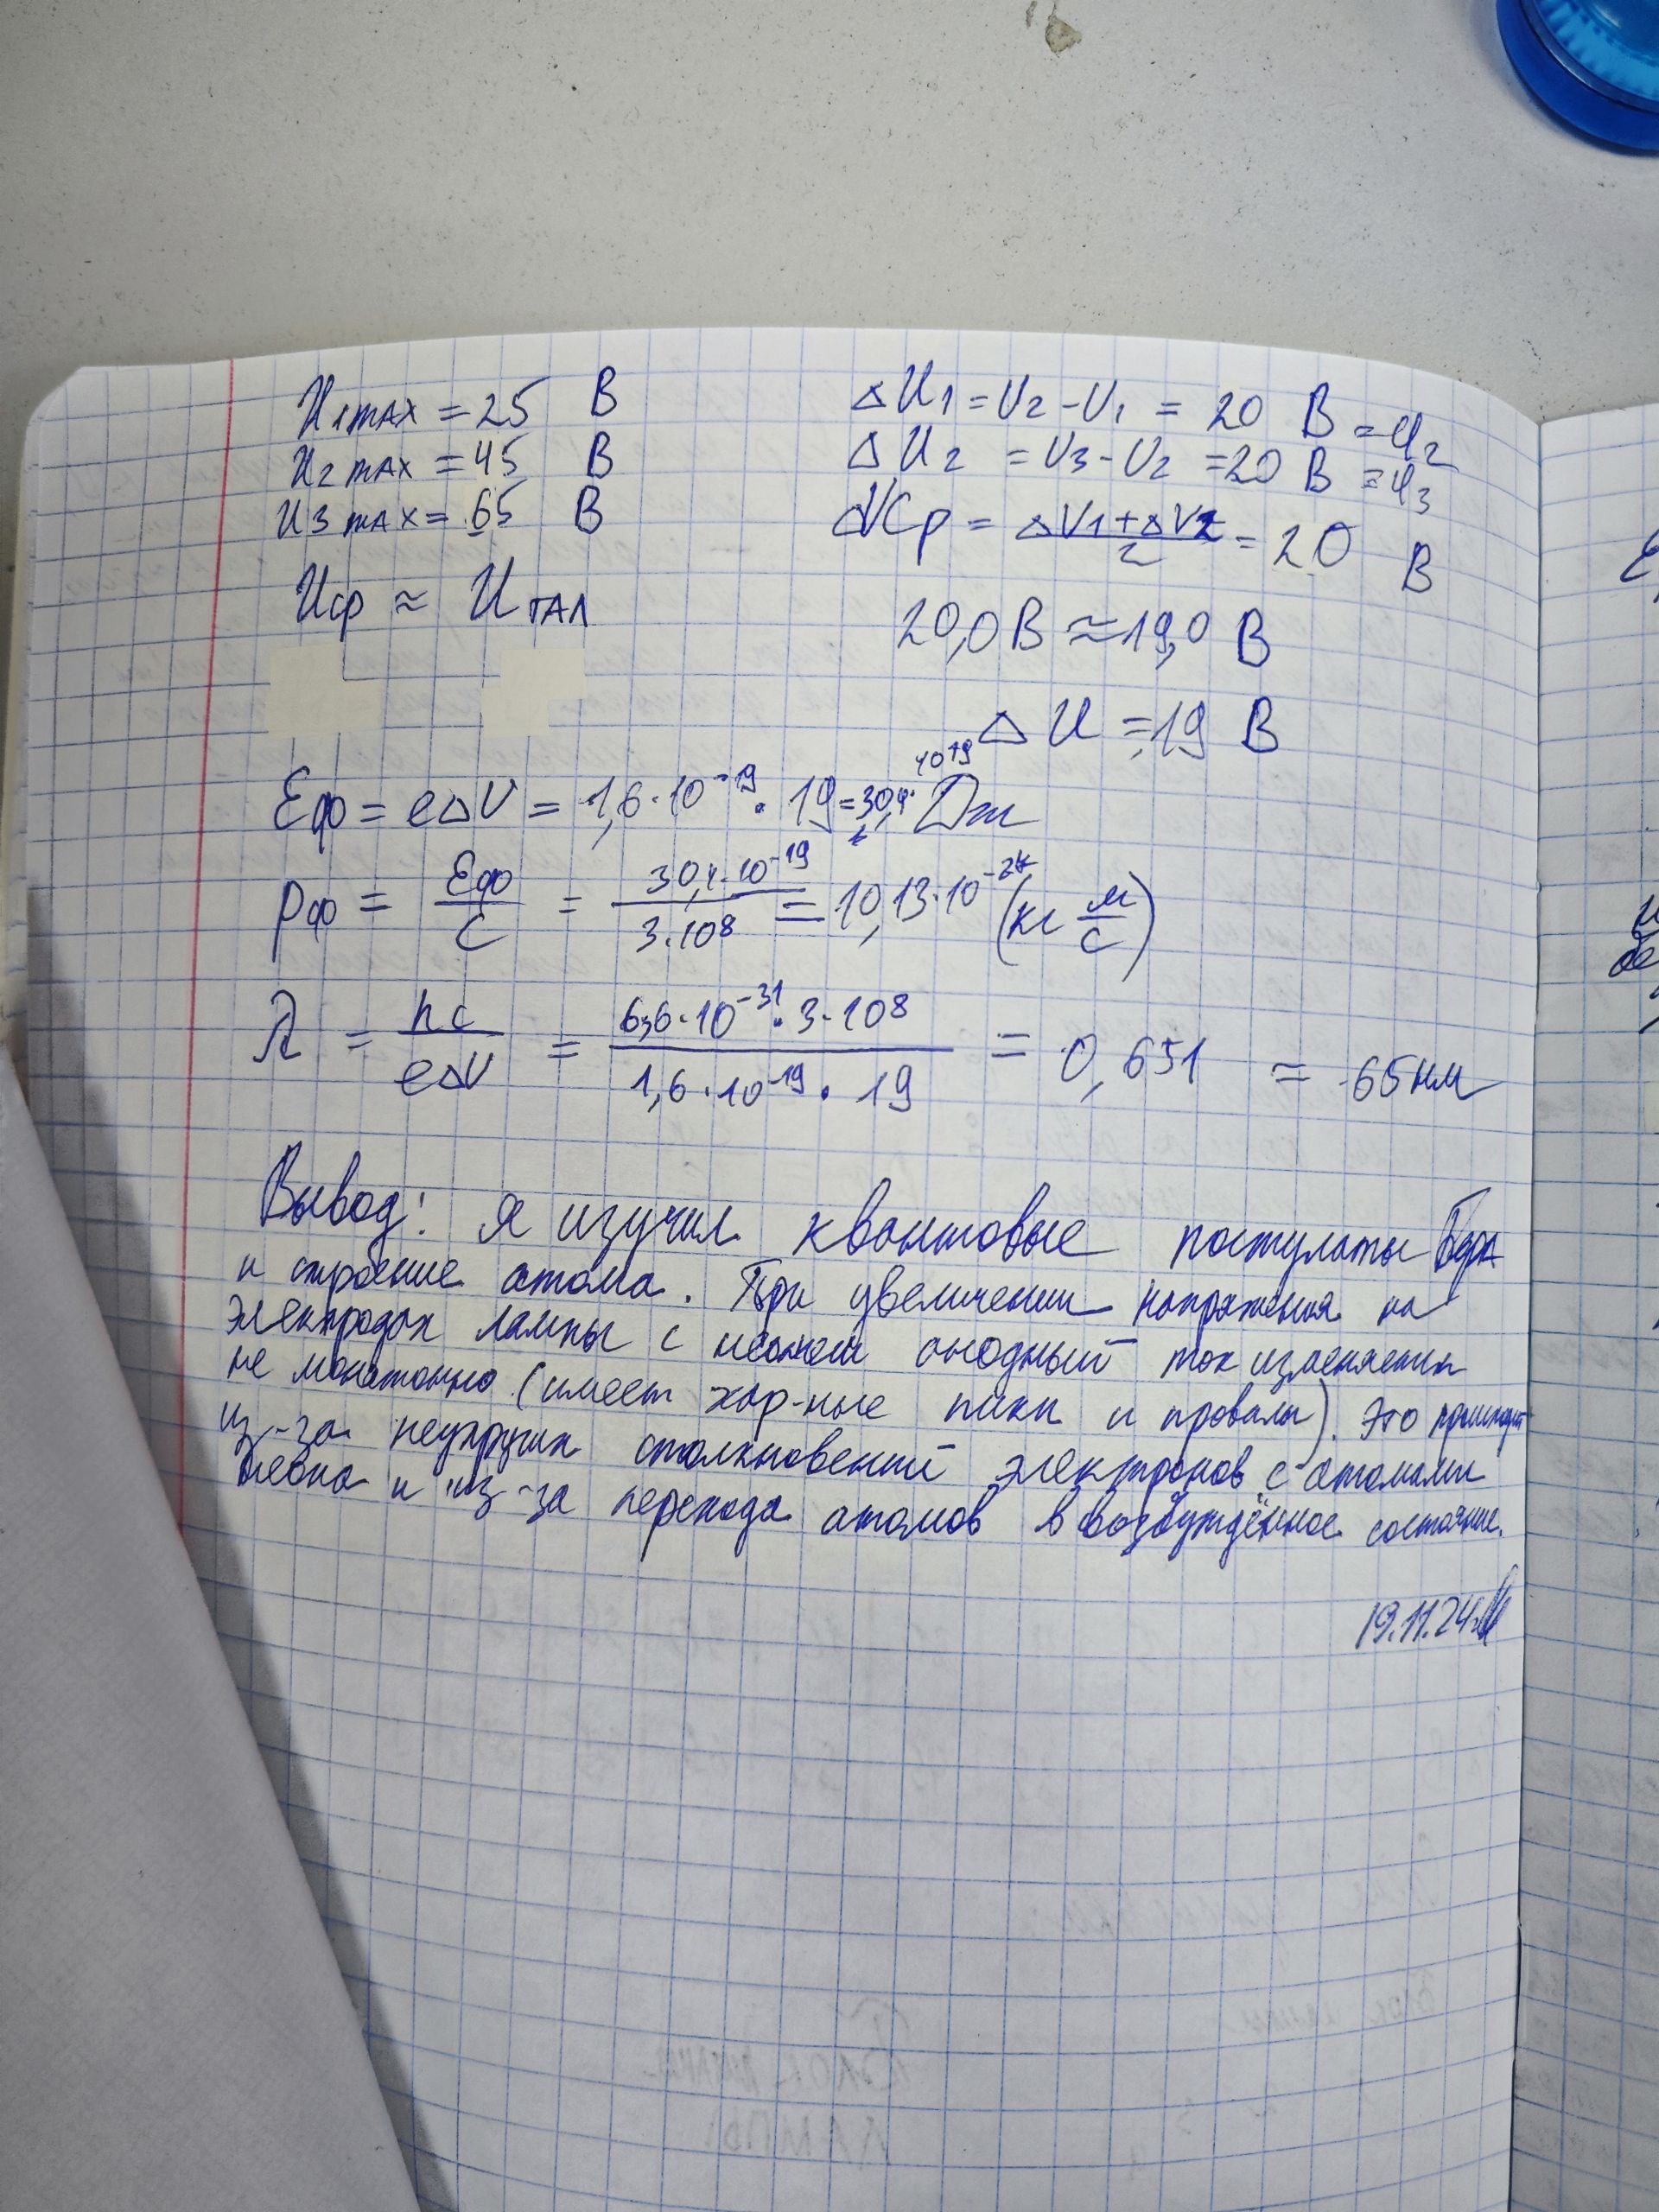 U1max = 25 В
ΔU1 = U2 - U1 = 20 В = φ2
U2max = 45 В
ΔU2 = U3 - U2 = 20 В = φ3
U3max = 65 В
Uср = ΔU1+ΔU2 / 2 = 20 В
Uср ≈ Uтал
20,0 В ≈ 19,0 В
ΔU = 19 В
Eф = eΔU = 1,6·10⁻¹⁹ · 19 = 30,4· 10⁻¹⁹ Дж
pф = Eф / c = 30,4·10⁻¹⁹ / 3·10⁸ = 10,13·10⁻²⁷ (кг м/с)
λ = hc / eΔU = 6,6·10⁻³¹ · 3·10⁸ / 1,6·10⁻¹⁹ · 19 = 0,651 = 65 нм
Вывод: Я изучил квантовые постулаты Бора
и строение атома. При увеличении напряжения на
электродах лампы с неоном анодный ток изменяется
не монотонно (имеет хар-ные пики и провалы). Это происходит
из-за неупругих столкновений электронов с атомами
неона и из-за перехода атомов в возбуждённое состояние.
19.11.24